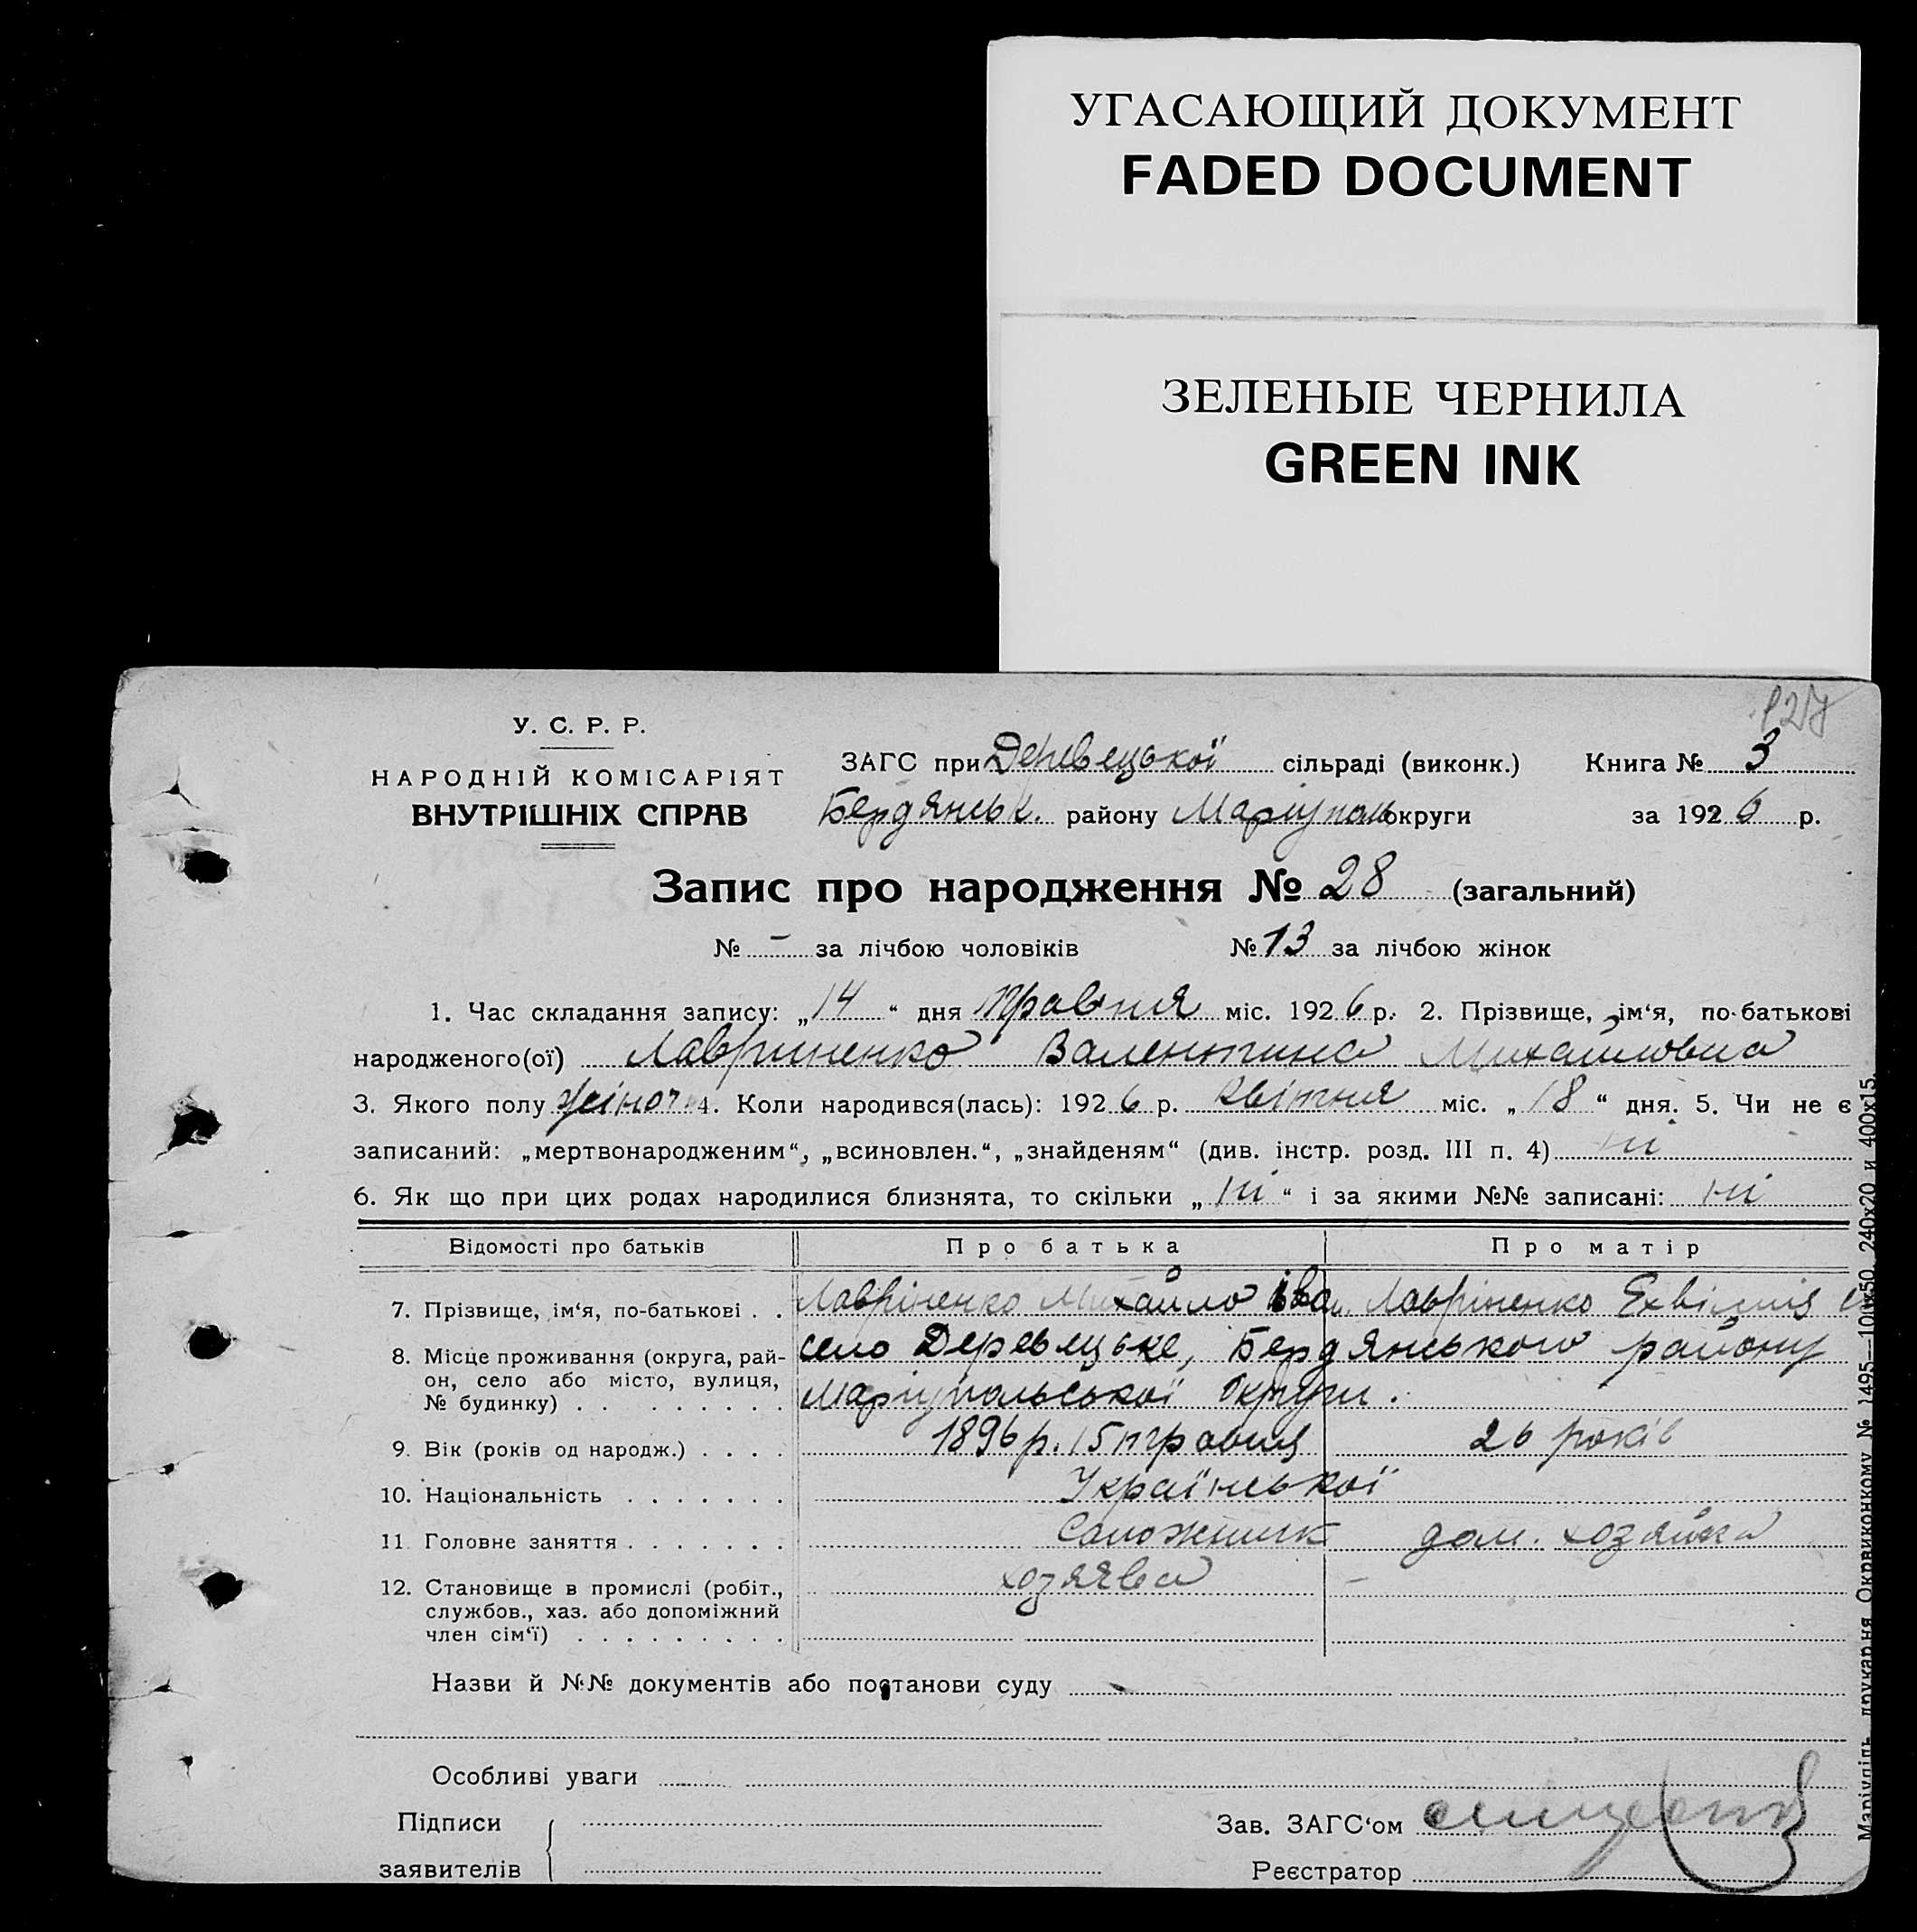 УГАСАЮЩИЙ ДОКУМЕНТ
FADED DOCUMENT
ЗЕЛЕНЫЕ ЧЕРНИЛА
GREEN INK
127
У. С. Р. Р.
НАРОДНІЙ КОМІСАРІЯТ
ВНУТРІШНІХ СПРАВ
ЗАГС при Деревецької сільраді (виконк.) Книга № 3
Бердянськ. району Маріуполь округи за 1926 р.
Запис про народження № 28 (загальний)
№ – за лічбою чоловіків № 13 за лічбою жінок
1. Час складання запису: „14“ дня травня міс. 1926 р. 2. Прізвище, ім‘я, по-батькові
народженого(ої) Лавриненко Валентина Михайловна
3. Якого полу жіноч. 4. Коли народився(лась): 1926 р. квітня міс. „18“ дня. 5. Чи не є
записаний: „мертвонародженим“, „всиновлен.“, „знайденям“ (див. інстр. розд. III п. 4) ні
6. Як що при цих родах народилися близнята, то скільки „ні“ і за якими №№ записані: ні
Відомості про батьків Про батька Про матір
7. Прізвище, ім‘я, по-батькові . . Лавріненко Михайло Іван. Лавріненко Ехвімія
8. Місце проживання (округа, рай- село Деревецьке, Бердянського району
он, село або місто, вулиця,
№ будинку) . . . . . . . . Маріупольської округи.
9. Вік (років од народж.) . . . . 1896 р. 15 травня 26 років
10. Національність . . . . . . . Української
11. Головне заняття . . . . . . . Сапожник дом. хозяйка
12. Становище в промислі (робіт., хозяява –
службов., хаз. або допоміжний
член сім‘ї) . . . . . . . . .
Назви й №№ документів або постанови суду
Особливі уваги
Підписи
заявителів
Зав. ЗАГС‘ом
Реєстратор
Маріупіль, друкарня Окрвиконкому № 1495—100х50, 240х20 и 400х15.